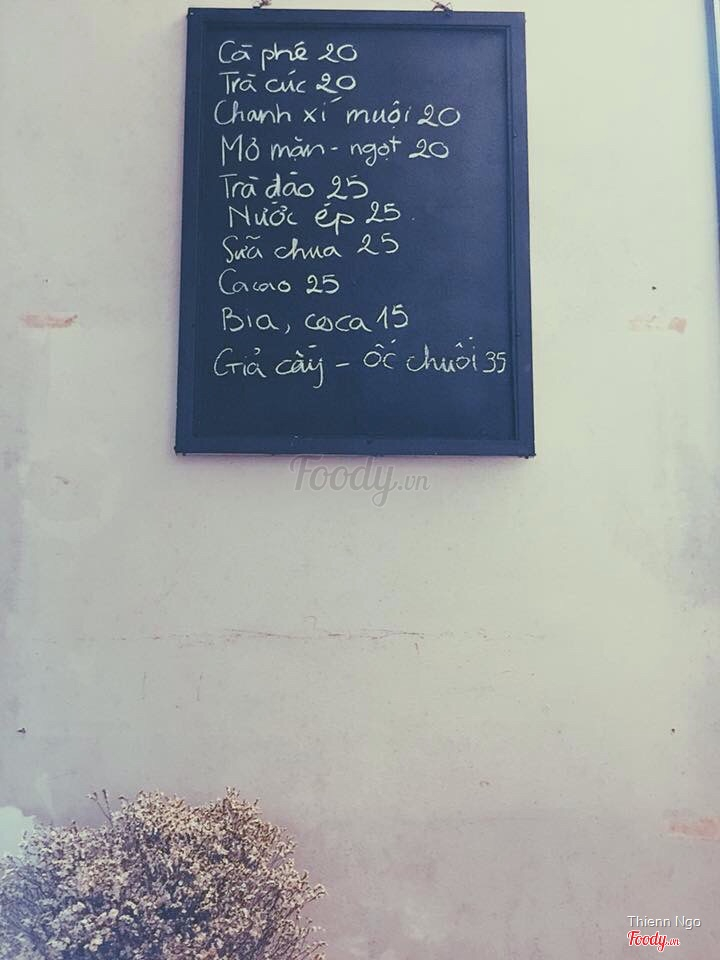 Cà phê 20
Trà cúc 20
Chanh xí muội 20
Mơ mặn - ngọt 20
Trà đào 25
Nước ép 25
Sữa chua 25
Cacao 25
Bia, coca 15
Giả cầy - ốc chuối 35
Foody.vn
Thienn Ngo
Foody.vn